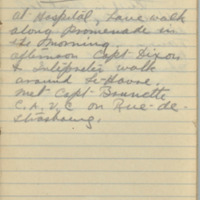 at Hospital, have walk
along Promenade in
the Morning.
afternoon Capt Dixon
& Interpreter walk
around Le-Havre.
met Capt- Brunette
C.A.V.C on Rue-de-
Strasbourg.